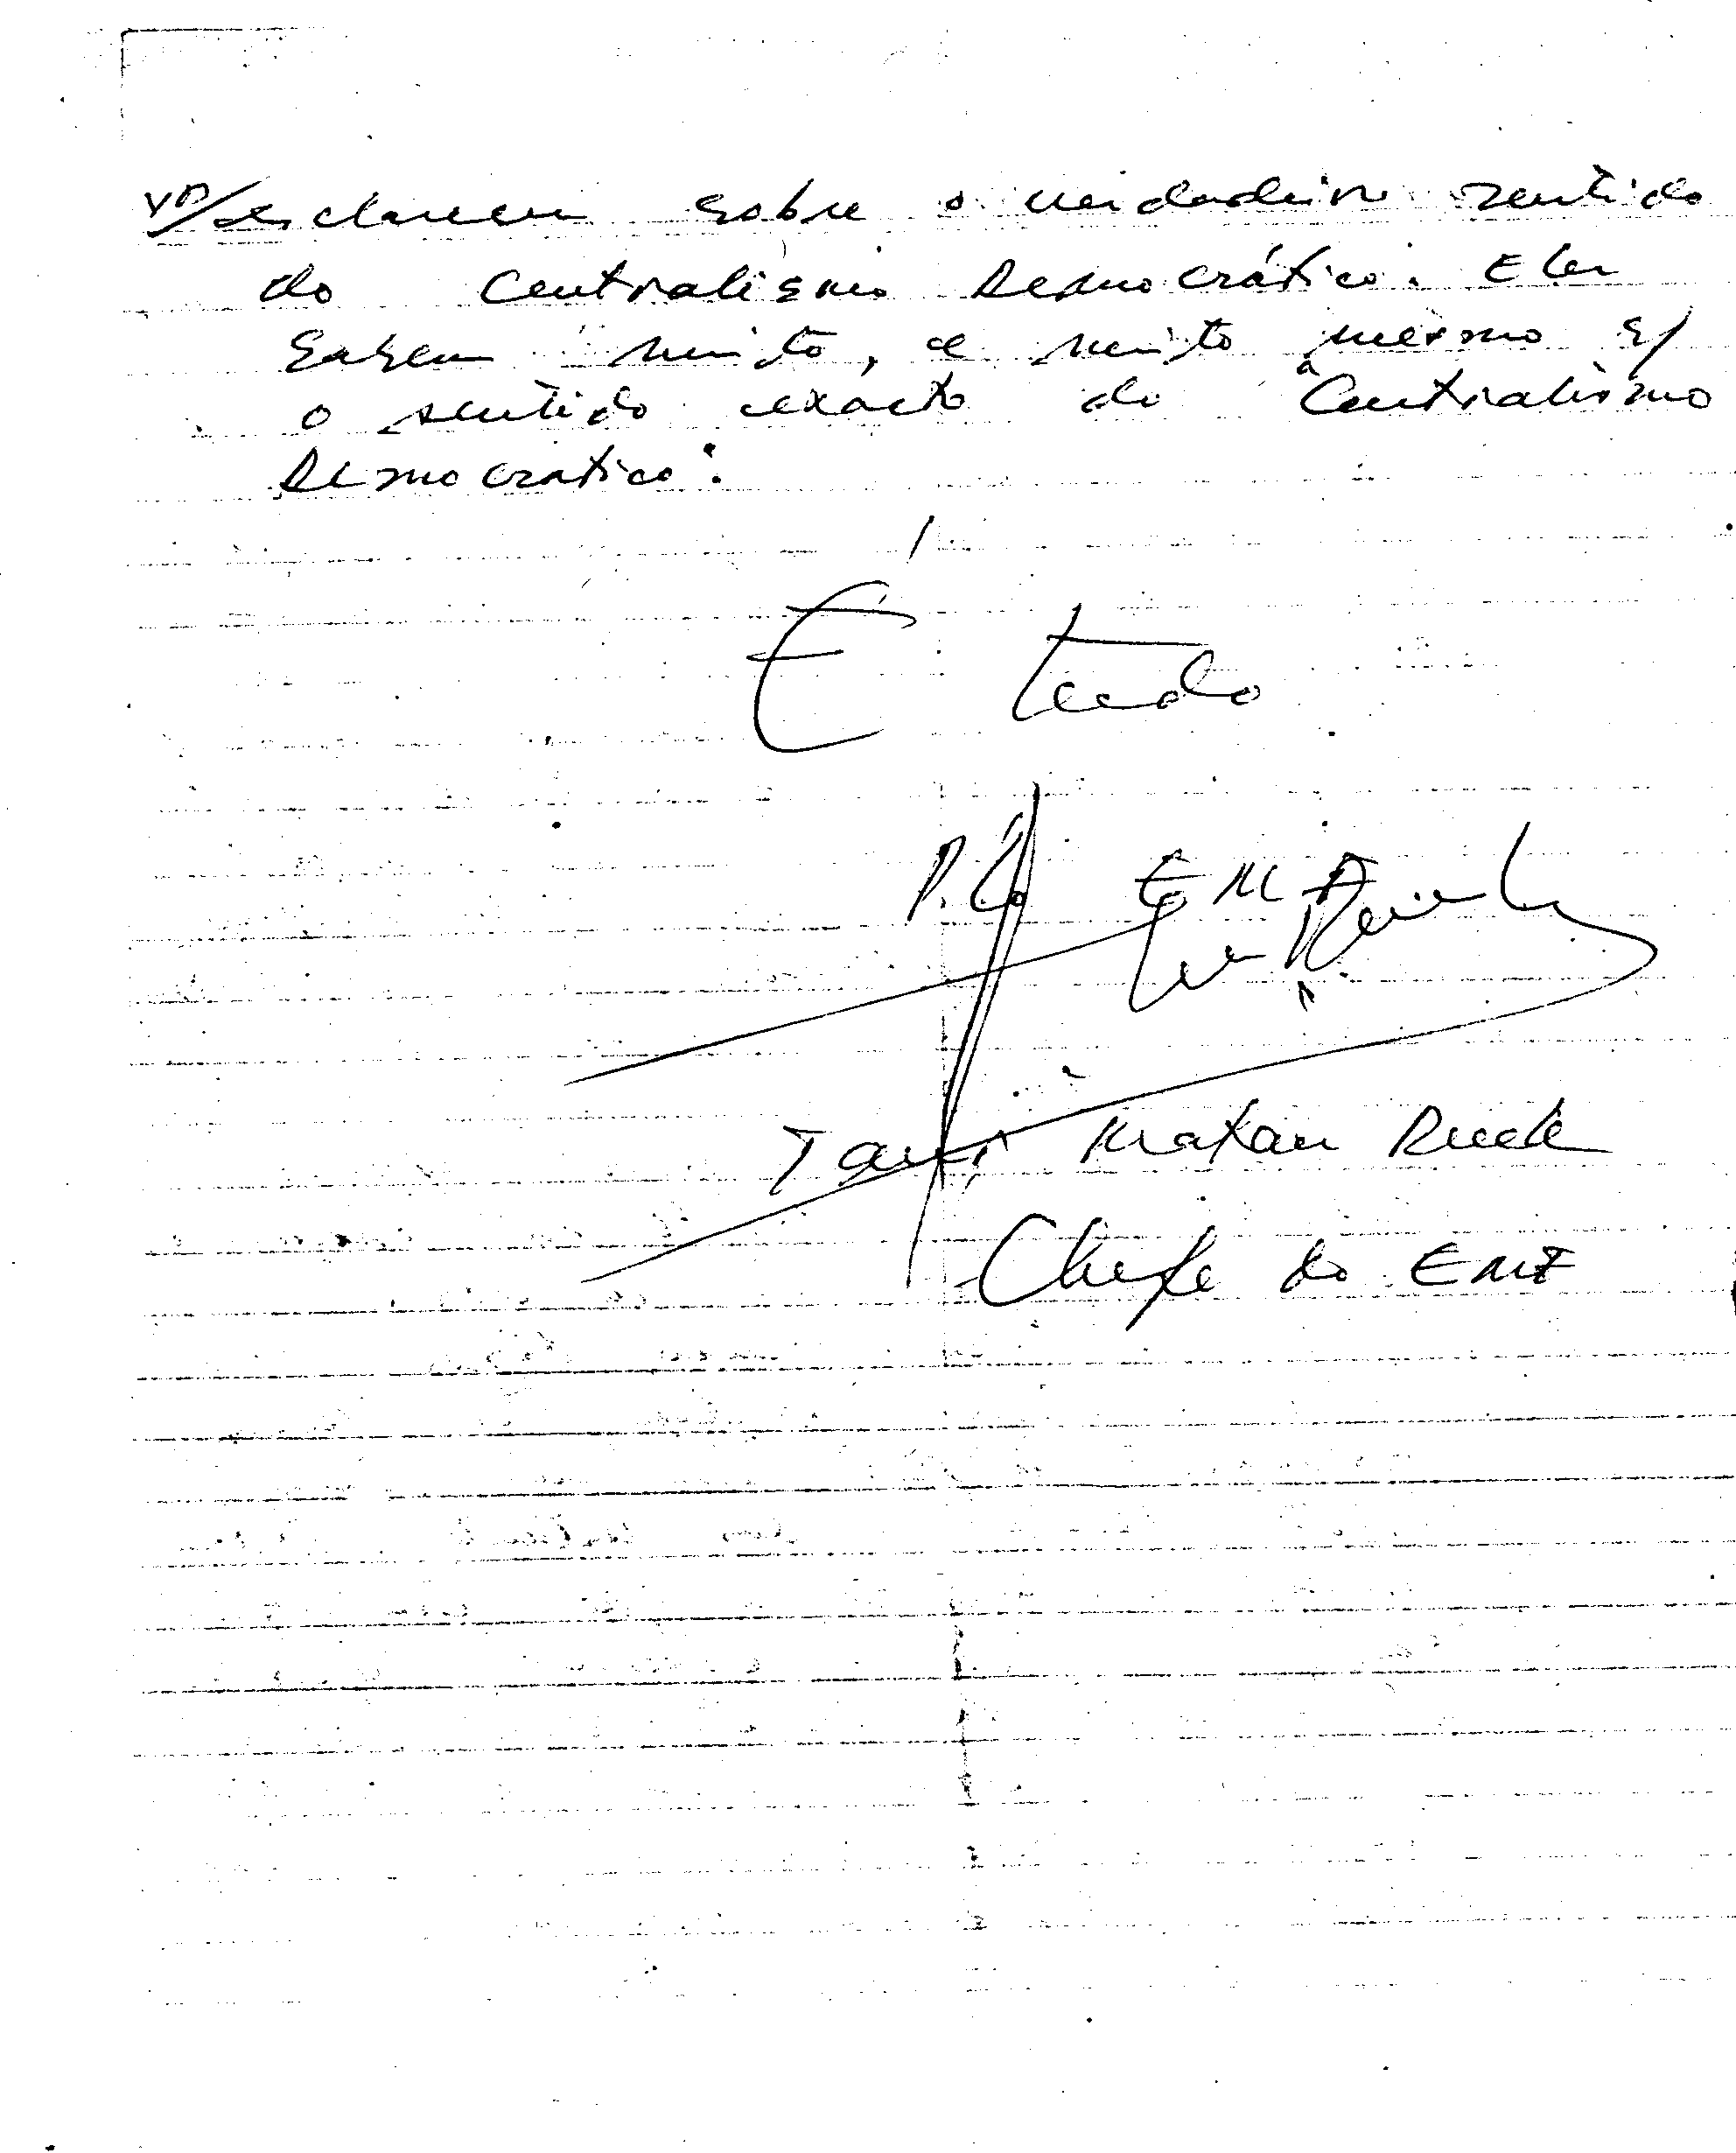 esclarecer sobre o verdadeiro sentido
do Centralismo Democrático. Eles
sabem muito, e muito mesmo s/
o sentido exacto do Centralismo
Democratico.
É tudo
P.lo EMF
Taur Matan Ruak
Chefe do EMF